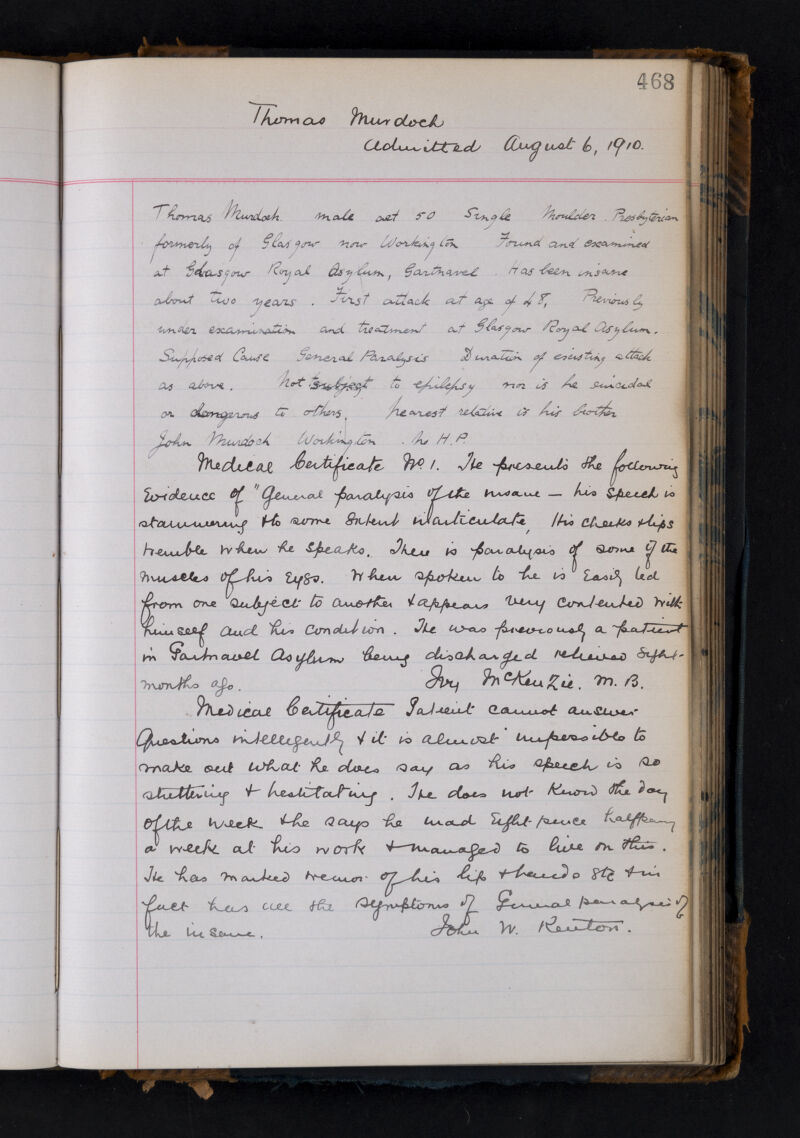 468
Thomas Murdoch
Admitted August 6, 1910.
Thomas Murdoch male aet 50 Single Moulder. Presbyterian
formerly of Glasgow now Workington Found and examined
at Glasgow Royal Asylum, Gartnavel. Has been insane
about two years. First attack at age of 48, Previously
under examination and treatment at Glasgow Royal Asylum.
Supposed Cause General Paralysis Duration of existing attack
as above. Not subject to epilepsy nor is he suicidal
or dangerous to others, nearest relative is his brother
John Murdoch Workington. No H.P.
Medical Certificate No 1. He presents the following
Evidence of "General paralysis of the insane — his speech is
stammering & to some Extent inarticulate, His cheeks & lips
tremble when he speaks. There is paralysis of some of the
muscles of his Eyes. When spoken to he is Easily led
from one subject to another & appears very contented with
himself and his condition. He was previously a patient
in Gartnavel Asylum being discharged relieved Eight
months ago. Ivy McKenzie. M.B.
Medical Certificate Patient cannot answer
Questions intelligently & it is almost impossible to
make out what he does say as his speech is so
stuttering & hestitating. He does not Know the day
of the week & he says he mad Eight pence halfpenny
a week at his work & managed to live on this.
He has marked tremor of his lip & hands etc & in
fact has all the symptoms of General paralysis of
the insane. John W. Renton.